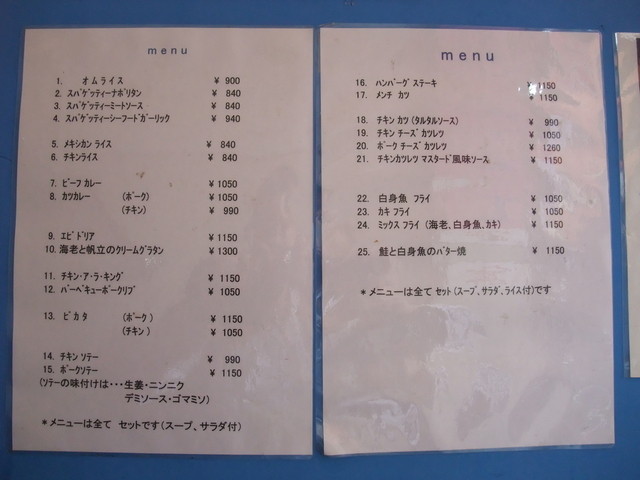 menu
1. オムライス ¥ 900
2. スパゲッティーナポリタン ¥ 840
3. スパゲッティーミートソース ¥ 840
4. スパゲッティーシーフードガーリック ¥ 940
5. メキシカン ライス ¥ 840
6. チキンライス ¥ 840
7. ビーフ カレー ¥ 1050
8. カツカレー (ポーク) ¥ 1050
(チキン) ¥ 990
9. エビドリア ¥ 1150
10. 海老と帆立のクリームグラタン ¥ 1300
11. チキン・ア・ラ・キング ¥ 1150
12. バーベキューポークリブ ¥ 1050
13. ピカタ (ポーク) ¥ 1150
(チキン) ¥ 1050
14. チキン ソテー ¥ 990
15. ポークソテー ¥ 1150
(ソテーの味付けは・・・生姜・ニンニク
デミソース・ゴマミソ)
*メニューは全て セットです(スープ、サラダ付)
menu
16. ハンバーグ ステーキ ¥ 1150
17. メンチ カツ ¥ 1150
18. チキン カツ (タルタルソース) ¥ 990
19. チキン チーズ カツレツ ¥ 1050
20. ポーク チーズ カツレツ ¥ 1260
21. チキンカツレツ マスタード風味ソース ¥ 1150
22. 白身魚 フライ ¥ 1050
23. カキ フライ ¥ 1050
24. ミックス フライ (海老、白身魚、カキ) ¥ 1150
25. 鮭と白身魚のバター焼 ¥ 1150
*メニューは全て セット(スープ、サラダ、ライス付)です